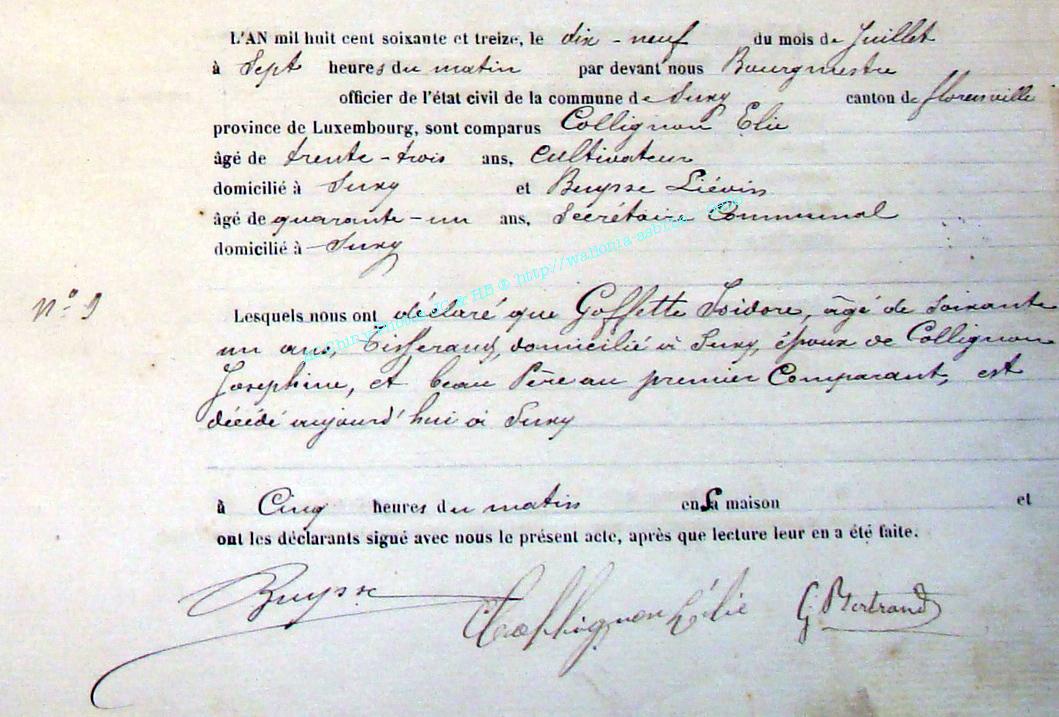 L'AN mil huit cent soixante et treize, le dix-neuf du mois de Juillet
à Sept heures du matin par devant nous Bourgmestre
officier de l'état civil de la commune de Suxy canton de florenville
province de Luxembourg, sont comparus Collignon Elie
âgé de trente-trois ans, Cultivateur
domicilié à Suxy et Buysse Liévin
âgé de quarante-un ans, Secrétaire Communal
domicilié à Suxy
N° 9
Lesquels nous ont déclaré que Goffette Isidore, âgé de soixante
un ans, Tisserand, domicilié à Suxy, époux de Collignon
Josephine, et beau Père au premier Comparant, est
décédé aujourd'hui à Suxy
à Cinq heures du matin en sa maison et
ont les déclarants signé avec nous le présent acte, après que lecture leur en a été faite.
Buysse Collignon Elie G Bertrand
HB © http://wallonia-asbl